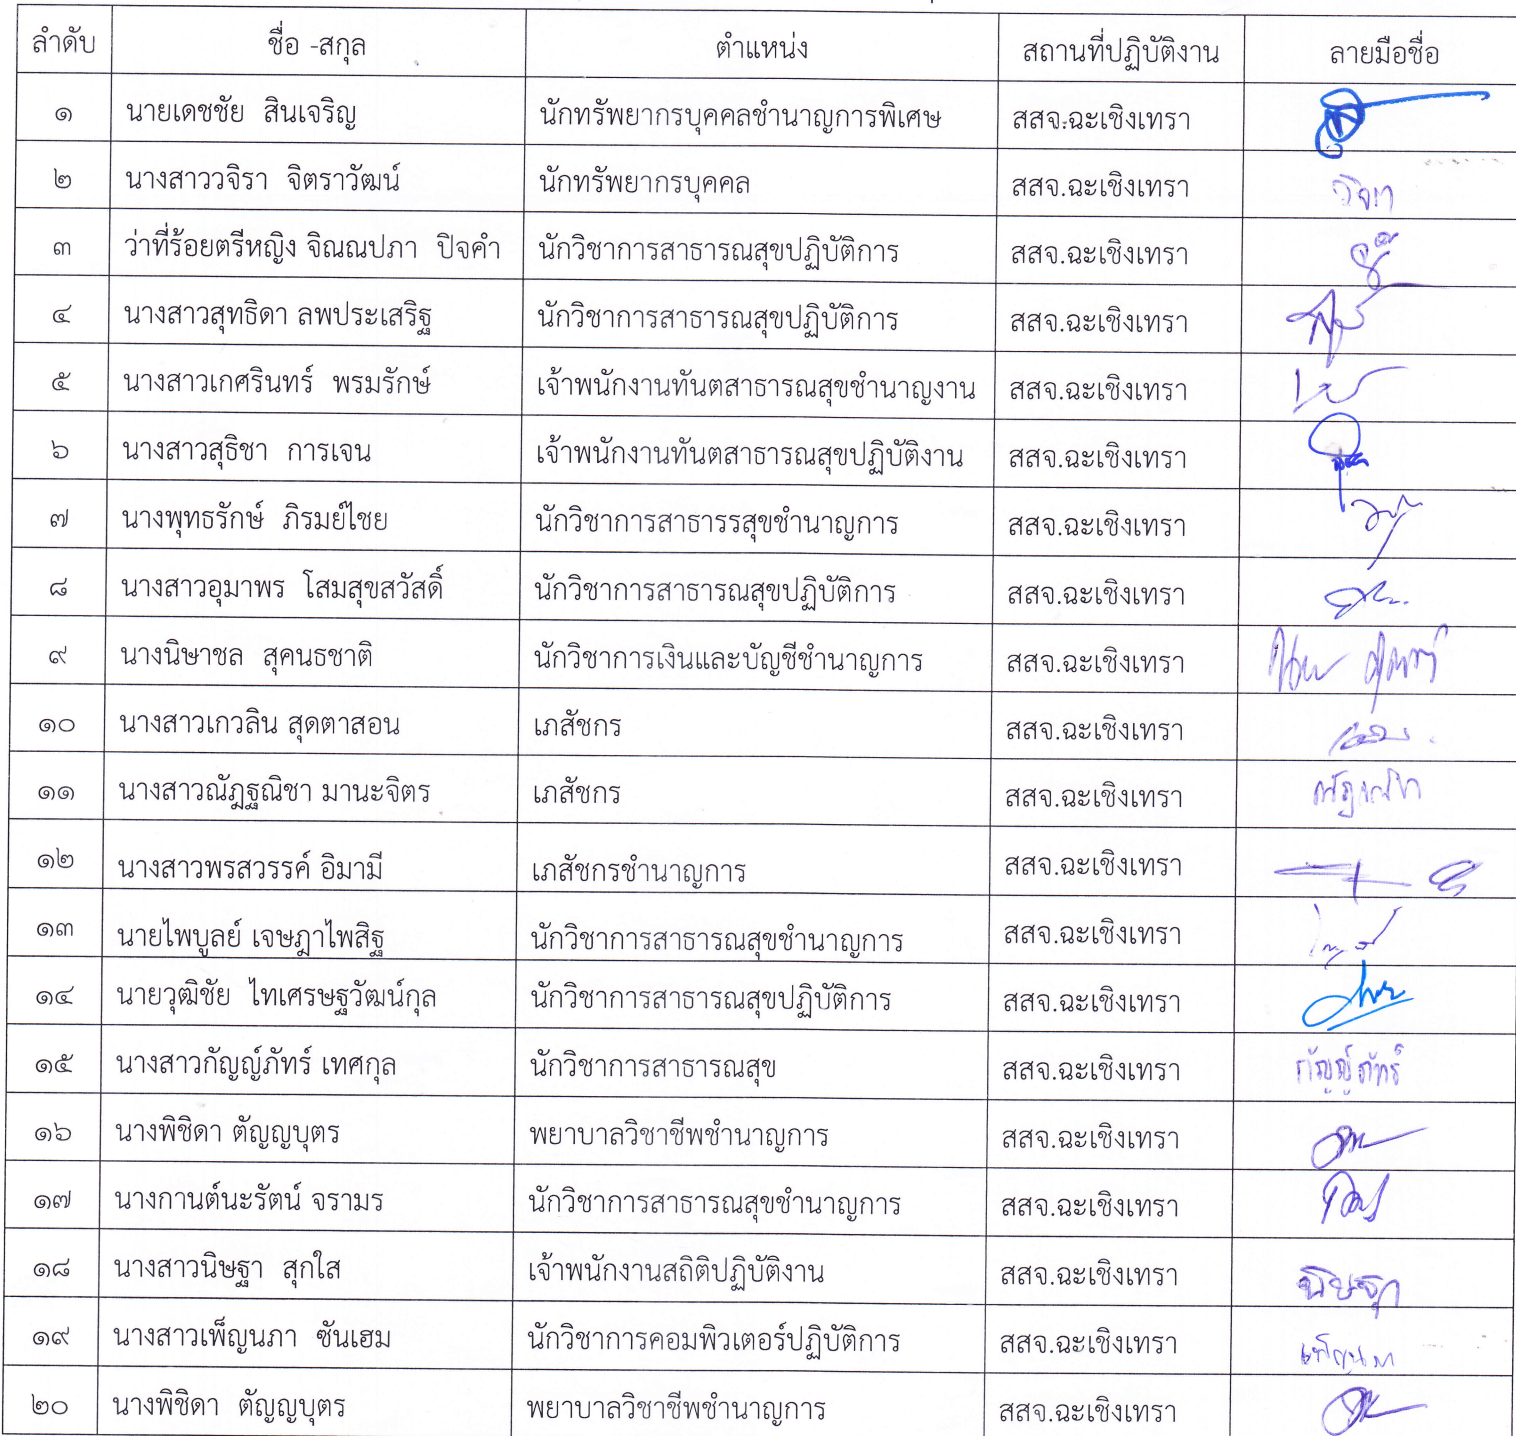 ลำดับ ชื่อ -สกุล ตำแหน่ง สถานที่ปฏิบัติงาน ลายมือชื่อ
๑ นายเดชชัย สินเจริญ นักทรัพยากรบุคคลชำนาญการพิเศษ สสจ.ฉะเชิงเทรา
๒ นางสาววจิรา จิตราวัฒน์ นักทรัพยากรบุคคล สสจ.ฉะเชิงเทรา วจิรา
๓ ว่าที่ร้อยตรีหญิง จิณณปภา ปิจคำ นักวิชาการสาธารณสุขปฏิบัติการ สสจ.ฉะเชิงเทรา
๔ นางสาวสุทธิดา ลพประเสริฐ นักวิชาการสาธารณสุขปฏิบัติการ สสจ.ฉะเชิงเทรา
๕ นางสาวเกศรินทร์ พรมรักษ์ เจ้าพนักงานทันตสาธารณสุขชำนาญงาน สสจ.ฉะเชิงเทรา
๖ นางสาวสุธิชา การเจน เจ้าพนักงานทันตสาธารณสุขปฏิบัติงาน สสจ.ฉะเชิงเทรา
๗ นางพุทธรักษ์ ภิรมย์ไชย นักวิชาการสาธารรสุขชำนาญการ สสจ.ฉะเชิงเทรา
๘ นางสาวอุมาพร โสมสุขสวัสดิ์ นักวิชาการสาธารณสุขปฏิบัติการ สสจ.ฉะเชิงเทรา
๙ นางนิษาชล สุคนธชาติ นักวิชาการเงินและบัญชีชำนาญการ สสจ.ฉะเชิงเทรา
๑๐ นางสาวเกวลิน สุดตาสอน เภสัชกร สสจ.ฉะเชิงเทรา
๑๑ นางสาวณัฎฐณิชา มานะจิตร เภสัชกร สสจ.ฉะเชิงเทรา
๑๒ นางสาวพรสวรรค์ อิมามี เภสัชกรชำนาญการ สสจ.ฉะเชิงเทรา
๑๓ นายไพบูลย์ เจษฎาไพสิฐ นักวิชาการสาธารณสุขชำนาญการ สสจ.ฉะเชิงเทรา
๑๔ นายวุฒิชัย ไทเศรษฐวัฒน์กุล นักวิชาการสาธารณสุขปฏิบัติการ สสจ.ฉะเชิงเทรา
๑๕ นางสาวกัญญ์ภัทร์ เทศกุล นักวิชาการสาธารณสุข สสจ.ฉะเชิงเทรา กัญญ์ภัทร์
๑๖ นางพิชิดา ตัญญบุตร พยาบาลวิชาชีพชำนาญการ สสจ.ฉะเชิงเทรา
๑๗ นางกานต์นะรัตน์ จรามร นักวิชาการสาธารณสุขชำนาญการ สสจ.ฉะเชิงเทรา
๑๘ นางสาวนิษฐา สุกใส เจ้าพนักงานสถิติปฏิบัติงาน สสจ.ฉะเชิงเทรา นิษฐา
๑๙ นางสาวเพ็ญนภา ซันเฮม นักวิชาการคอมพิวเตอร์ปฏิบัติการ สสจ.ฉะเชิงเทรา เพ็ญนภา
๒๐ นางพิชิดา ตัญญบุตร พยาบาลวิชาชีพชำนาญการ สสจ.ฉะเชิงเทรา